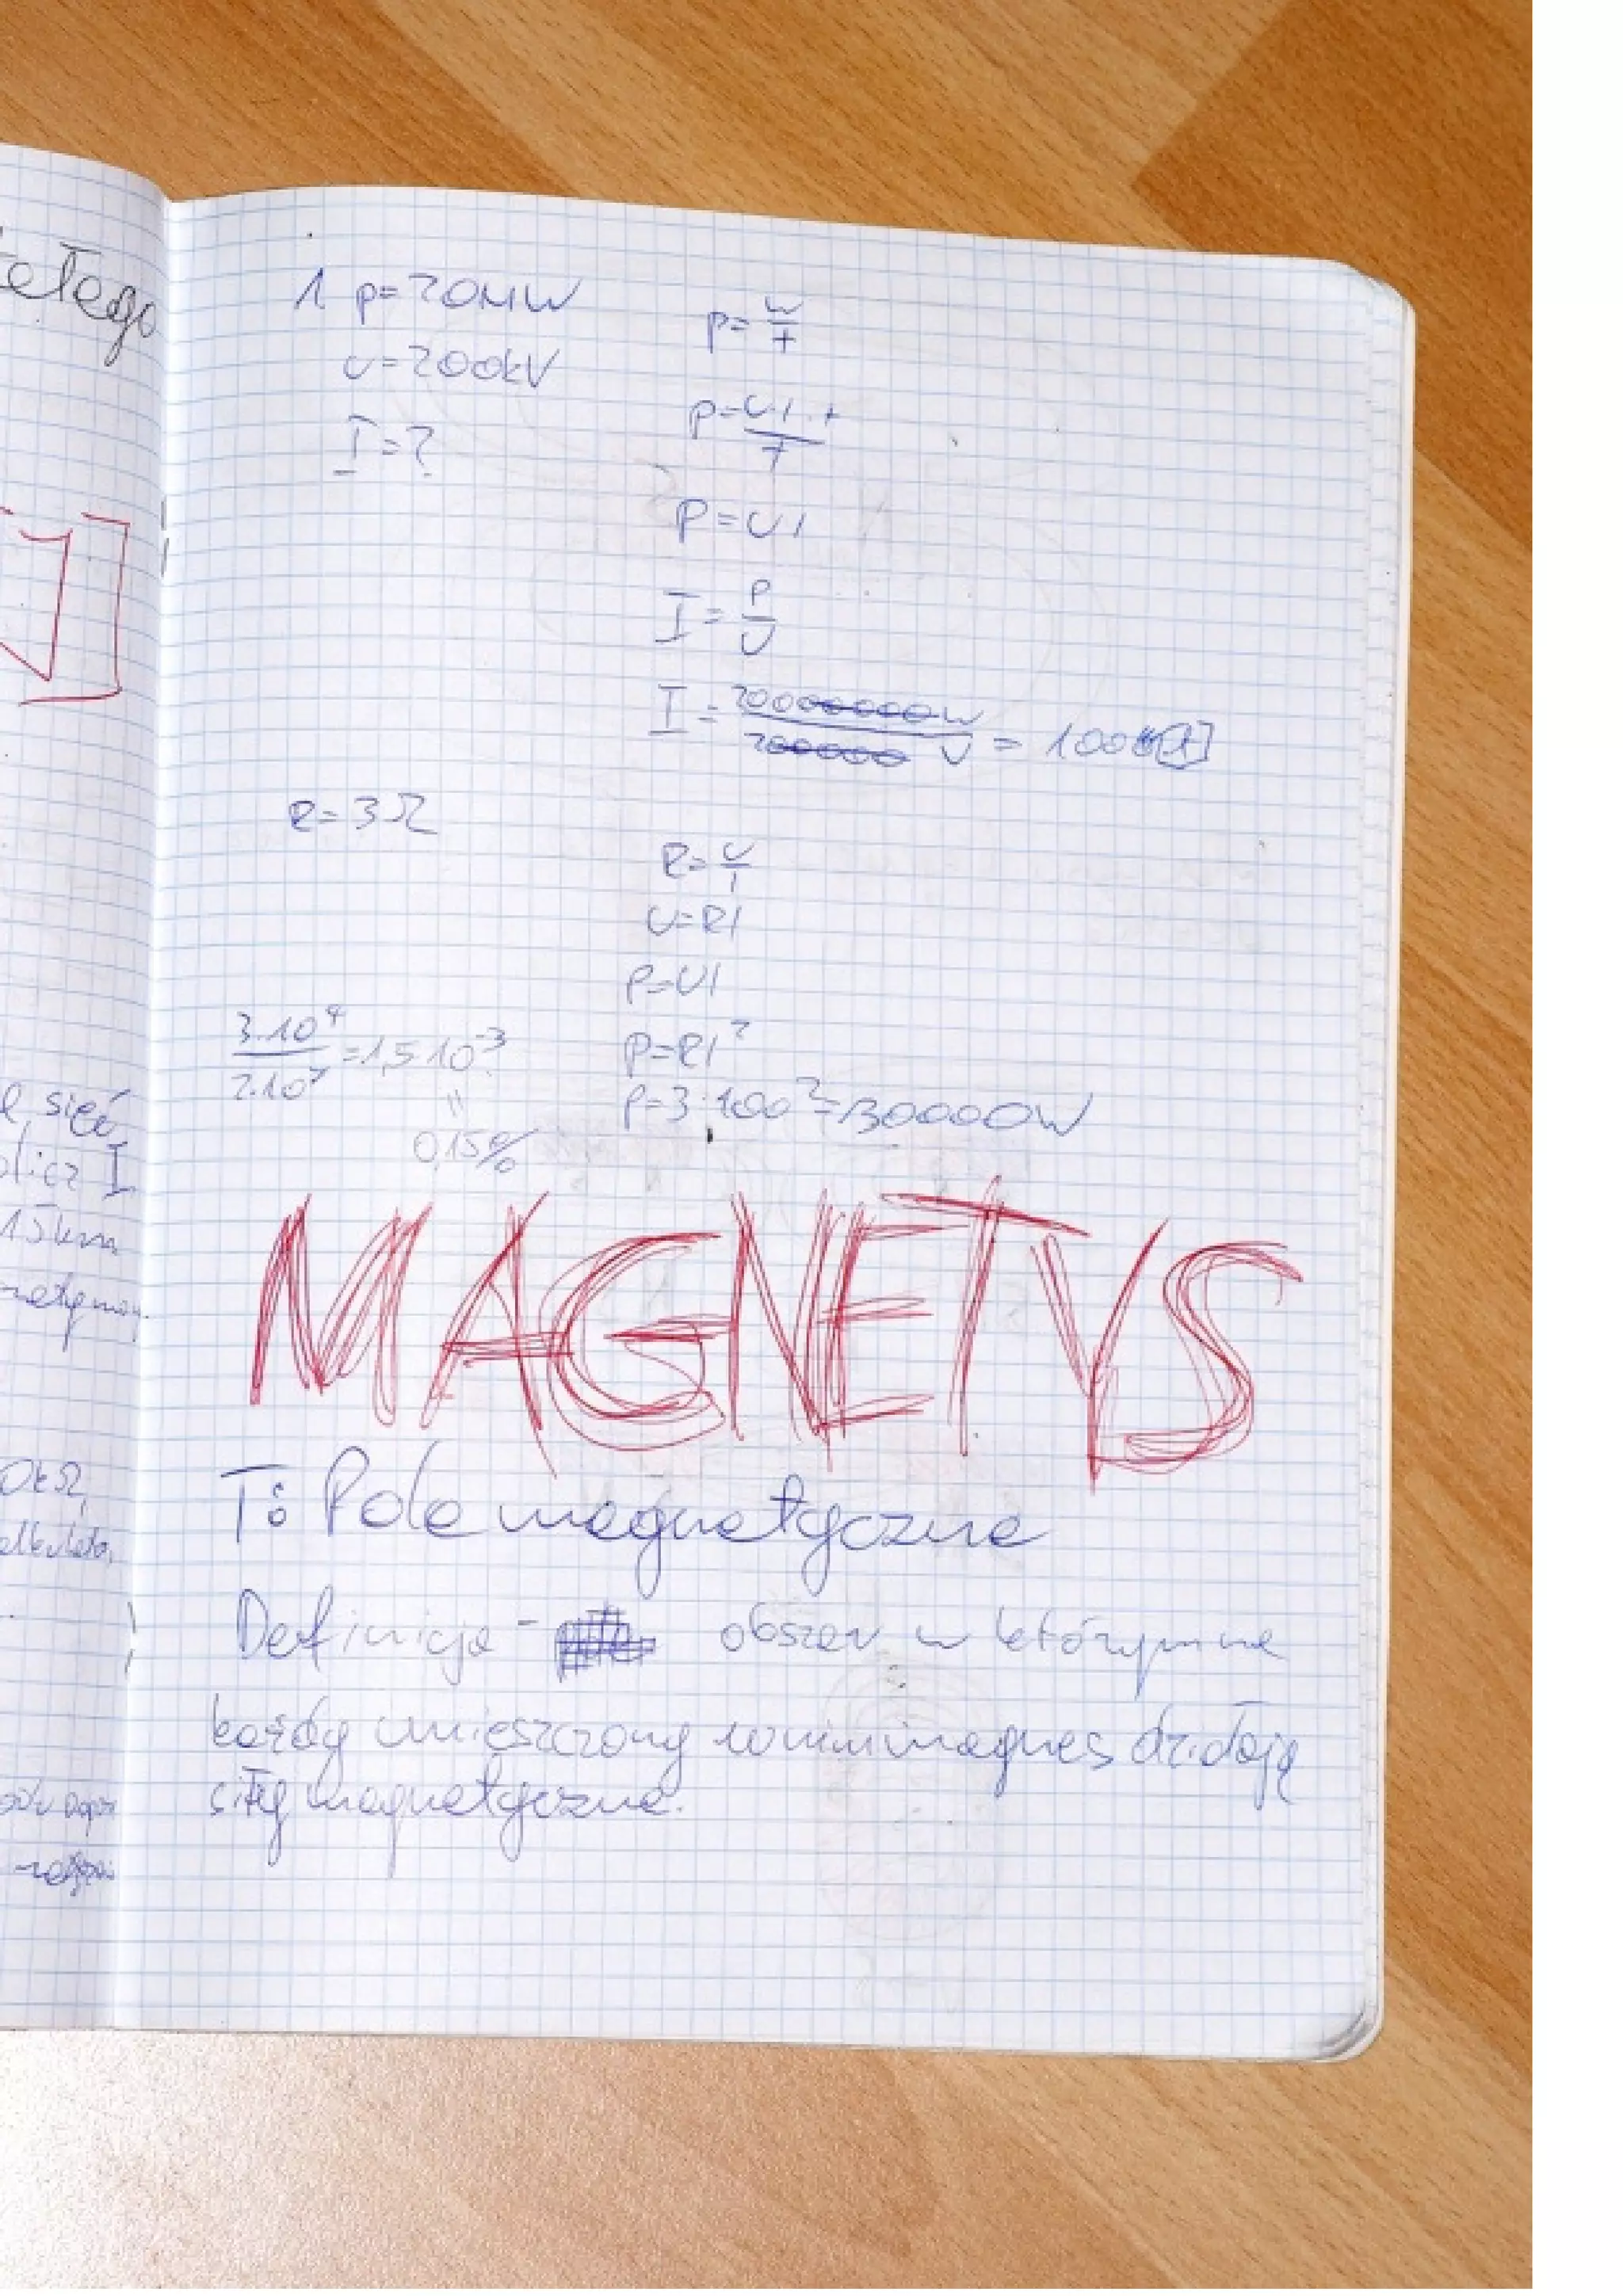 ełego
J]
sieć
I
15km
1. P=20MW
U=200kV
I=?
P=W/t
P=U·I·t/t
P=UI
I=P/U
I=20000000W/200000V = 100[A]
R=3Ω
R=U/I
U=RI
P=UI
P=RI²
P=3·100²=30000W
3·10⁴/2·10⁷=1,5·10⁻³
=
0,15%
MAGNETYS
T: Pole magnetyczne
Definicja - obszar w którym na
każdy umieszczony w nim magnes działają
siły magnetyczne.